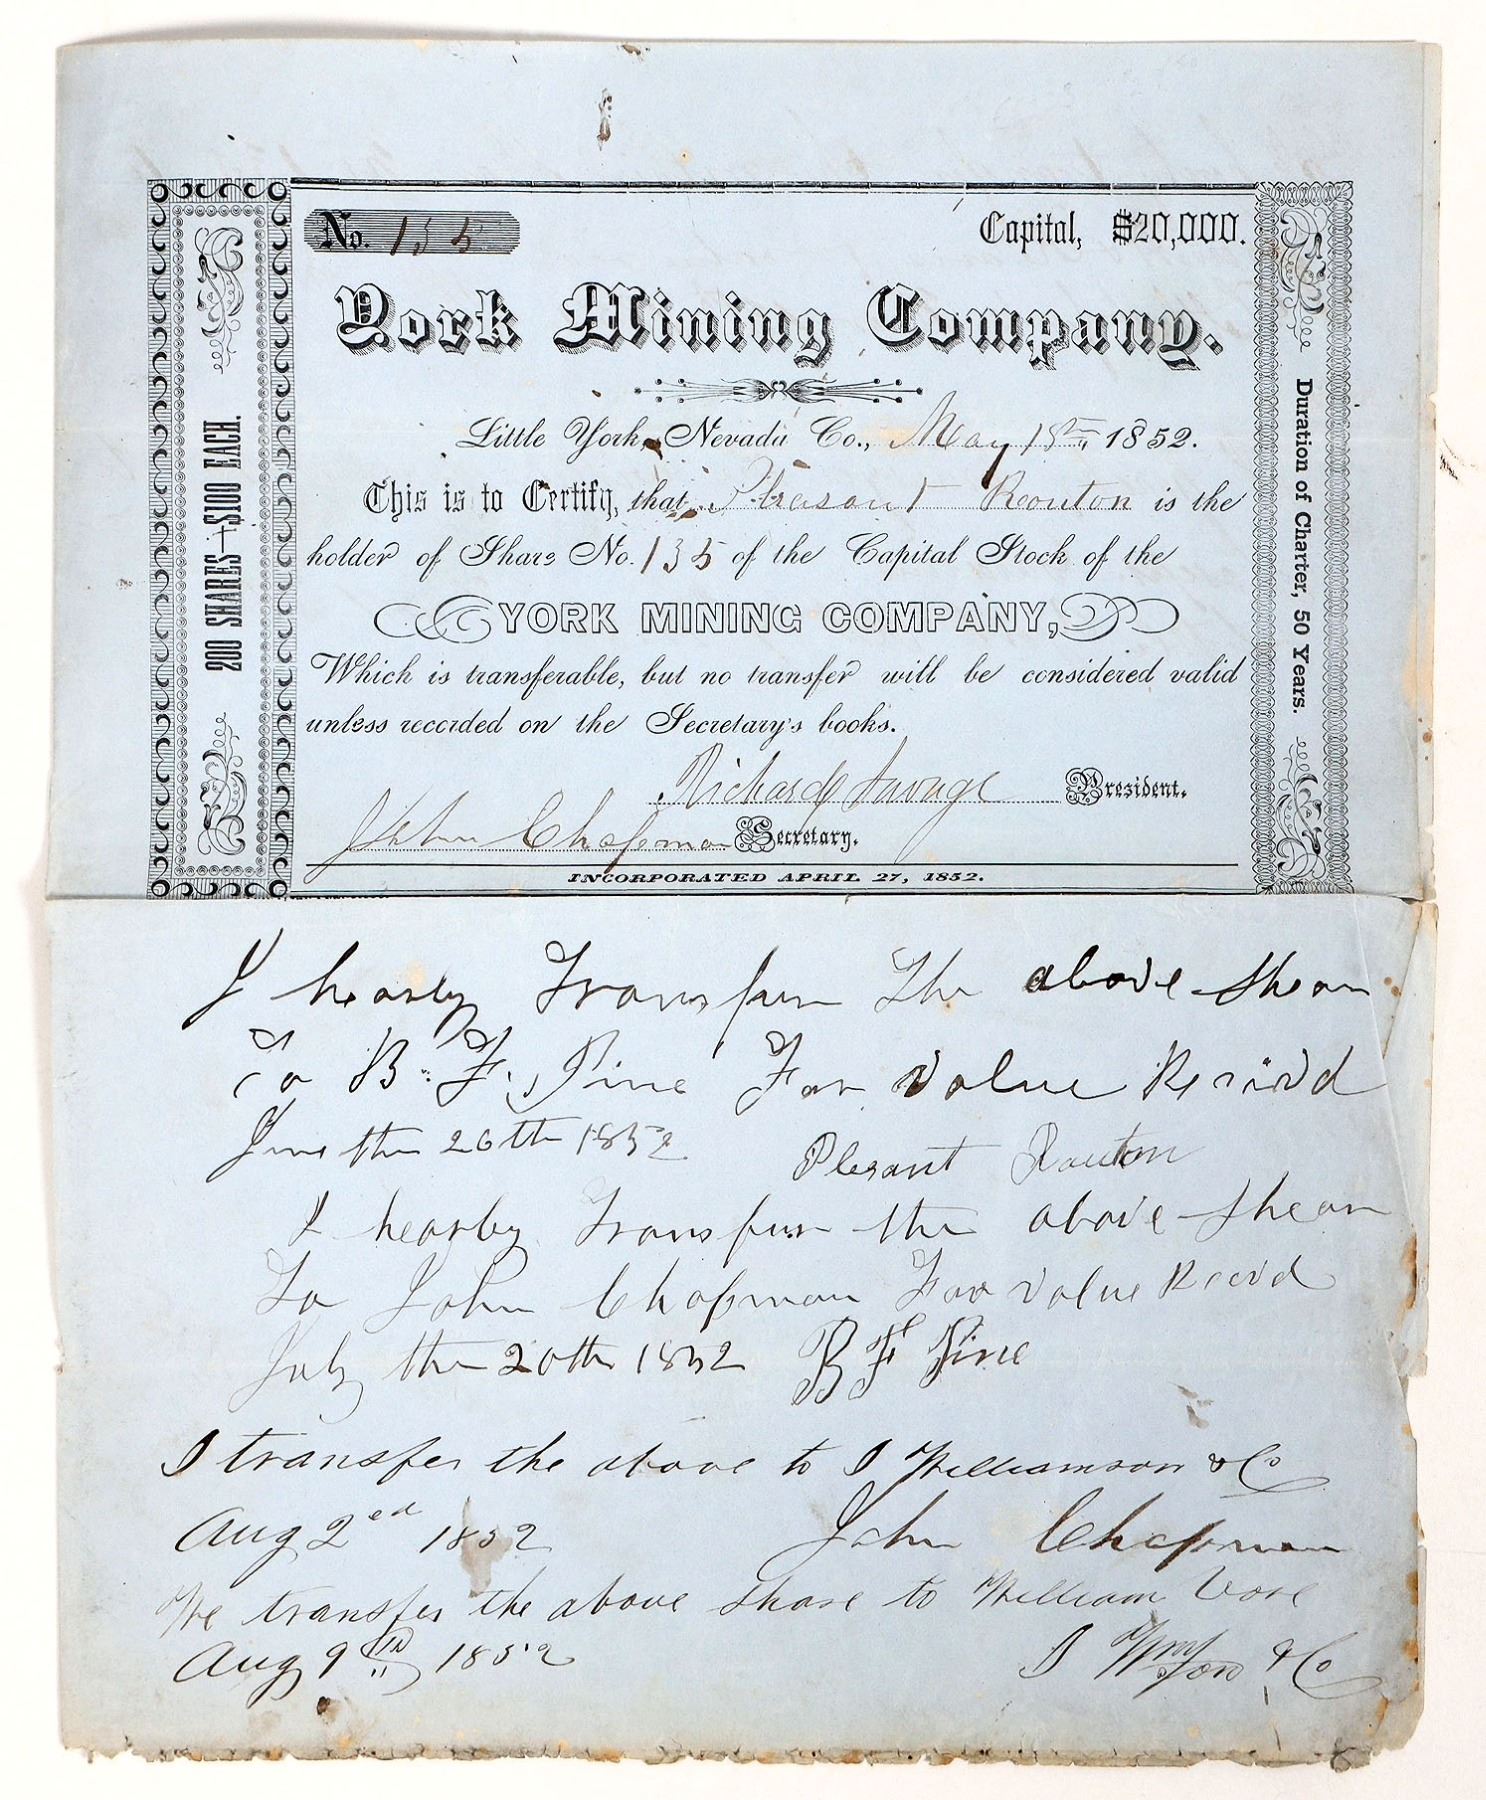 No. 135
Capital, $20,000.
York Mining Company.
200 SHARES—$100 EACH.
Duration of Charter, 50 Years.
Little York, Nevada Co., May 18th 1852.
This is to Certify, that Pleasant Routon is the
holder of Share No. 135 of the Capital Stock of the
YORK MINING COMPANY,
Which is transferable, but no transfer will be considered valid
unless recorded on the Secretary's books.
Richard Savage President.
John Chapman Secretary.
INCORPORATED APRIL 27, 1852.
I hearby Transfur the above Shear
To B. F. Pine For Value Recivd
June the 26th 1852 Plesant Routon
I hearby Transfur the above Shear
To John Chapman For Value Recivd
July the 20th 1852 B F Pine
I transfer the above to J Williamson & Co
Aug 2ed 1852 John Chapman
We transfer the above share to William Vore
Aug 9th 1852 J Wmson & Co